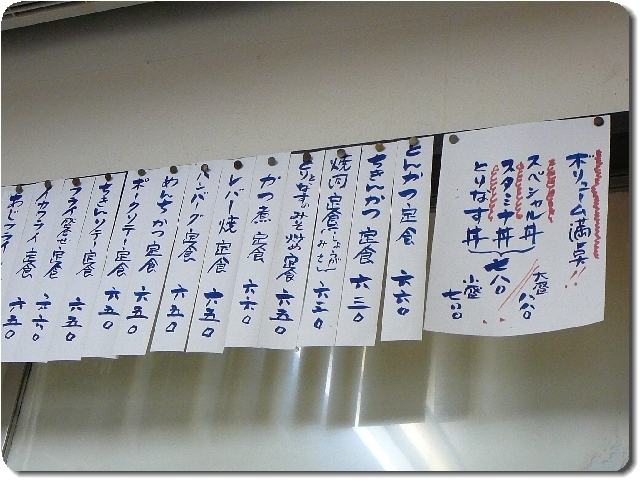 ボリューム満点!!
スペシャル丼
スタミナ丼
とりなす丼
七八〇
大盛
八八〇
小盛
七〇〇
とんかつ定食 六六〇
ちきんかつ定食 六三〇
焼肉定食 六三〇
とりとなすのみそ炒め定食 六五〇
かつ煮定食 六五〇
レバー焼定食 六六〇
ハンバーグ定食 六五〇
めんちかつ定食 六五〇
ポークソテー定食 六五〇
ちきんソテー定食 六五〇
フライ盛合せ定食 六五〇
イカフライ定食 六六〇
あじフライ 六五〇